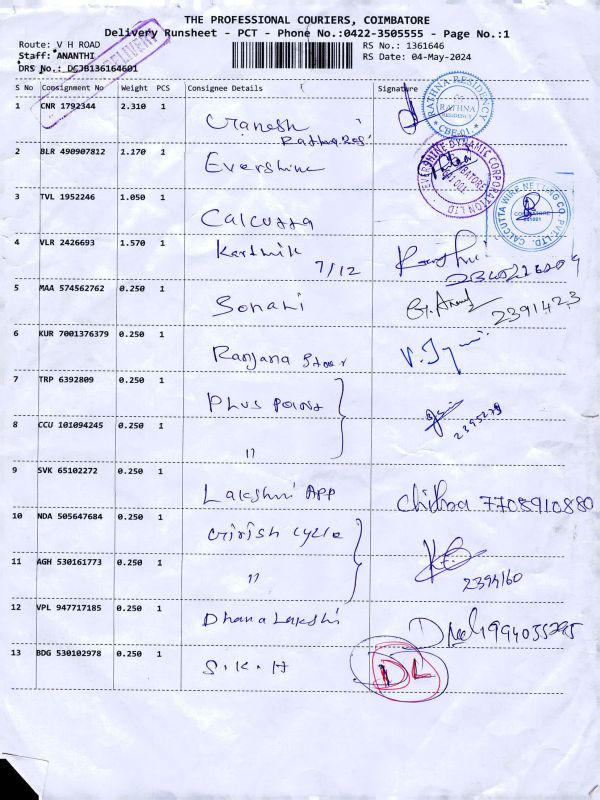 THE PROFESSIONAL COURIERS, COIMBATORE
Delivery Runsheet - PCT - Phone No.:0422-3505555 - Page No.:1
Route: V H ROAD
RS No.: 1361646
Staff: ANANTHI
RS Date: 04-May-2024
DRS No.: DCJB136164601
DELIVERY
S No Consignment No Weight PCS Consignee Details Signature
1 CNR 1792344 2.310 1 Ganesh
Rathna Res'
RATHNA RESIDENCY
RATHNA
RESIDENCY
CBE-01.
2 BLR 490907812 1.170 1 Evershine
EVERSHINE DYNAMIC CORPORATION LTD
3 TVL 1952246 1.050 1 Calcutta
CALCUTTA WIRE NETTING CO. PVT. LTD.
COIMBATORE
641001
4 VLR 2426693 1.570 1 Karthik
7/12
5 MAA 574562762 0.250 1 Sonari
2391423
6 KUR 7001376379 0.250 1 Ranjana Store
7 TRP 6392809 0.250 1 Plus Point
2395279
8 CCU 101094245 0.250 1 11
9 SVK 65102272 0.250 1 Lakshmi APP Chitra 7708910880
10 NDA 505647684 0.250 1 Girish cycle
11 AGH 530161773 0.250 1 11
2394160
12 VPL 947717185 0.250 1 Dhanalakshi
13 BDG 530102978 0.250 1 S.K.H DL